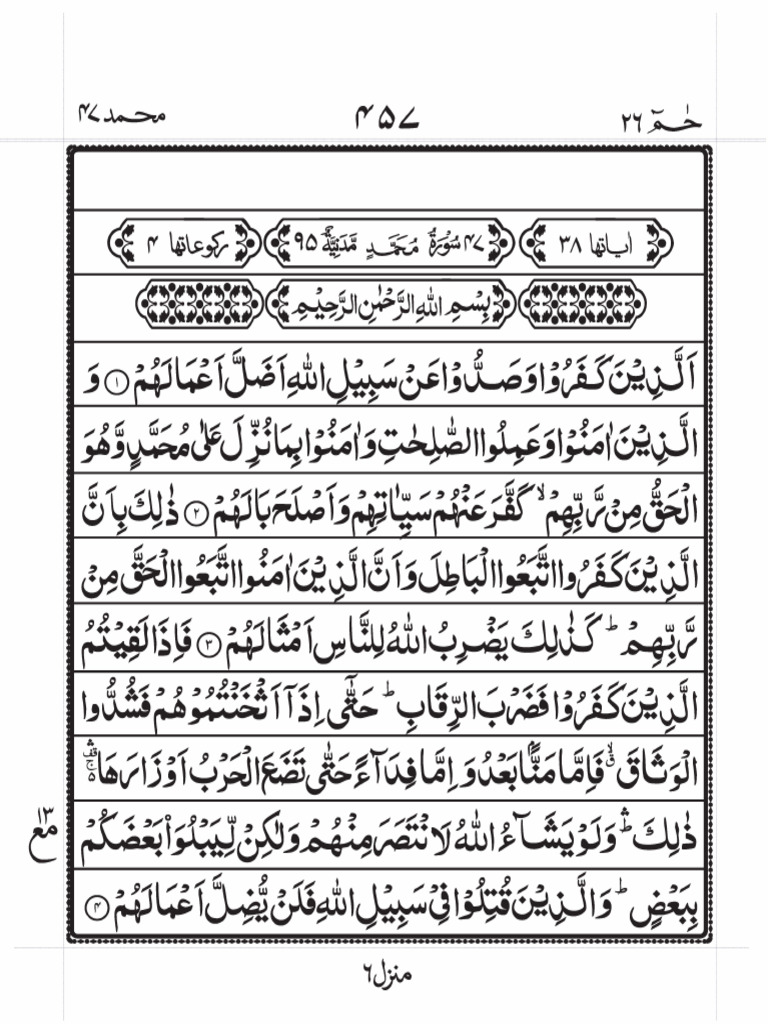 حٰمٓ ۲۶ ۴۵۷ محمد ۴۷
اٰیاتها ۳۸ ۴۷ سُوْرَةُ مُحَمَّدٍ مَّدَنِیَّةٌ ۹۵ رکوعاتها ۴
بِسْمِ اللّٰهِ الرَّحْمٰنِ الرَّحِیْمِ
اَلَّذِیْنَ كَفَرُوْا وَصَدُّوْا عَنْ سَبِیْلِ اللّٰهِ اَضَلَّ اَعْمَالَهُمْ ۝۱ وَ
الَّذِیْنَ اٰمَنُوْا وَعَمِلُوا الصّٰلِحٰتِ وَاٰمَنُوْا بِمَا نُزِّلَ عَلٰی مُحَمَّدٍ وَّهُوَ
الْحَقُّ مِنْ رَّبِّهِمْ ۙ كَفَّرَ عَنْهُمْ سَیِّاٰتِهِمْ وَاَصْلَحَ بَالَهُمْ ۝۲ ذٰلِكَ بِاَنَّ
الَّذِیْنَ كَفَرُوا اتَّبَعُوا الْبَاطِلَ وَاَنَّ الَّذِیْنَ اٰمَنُوا اتَّبَعُوا الْحَقَّ مِنْ
رَّبِّهِمْ ؕ كَذٰلِكَ یَضْرِبُ اللّٰهُ لِلنَّاسِ اَمْثَالَهُمْ ۝۳ فَاِذَا لَقِیْتُمُ
الَّذِیْنَ كَفَرُوْا فَضَرْبَ الرِّقَابِ ؕ حَتّٰۤی اِذَاۤ اَثْخَنْتُمُوْهُمْ فَشُدُّوا
الْوَثَاقَ ۙ فَاِمَّا مَنًّۢا بَعْدُ وَاِمَّا فِدَآءً حَتّٰی تَضَعَ الْحَرْبُ اَوْزَارَهَا
ذٰلِكَ ۛؕ وَلَوْ یَشَآءُ اللّٰهُ لَانْتَصَرَ مِنْهُمْ وَلٰكِنْ لِّیَبْلُوَا۟ بَعْضَكُمْ
بِبَعْضٍ ؕ وَالَّذِیْنَ قُتِلُوْا فِیْ سَبِیْلِ اللّٰهِ فَلَنْ یُّضِلَّ اَعْمَالَهُمْ ۝۴
مع ۱۳
منزل ۶